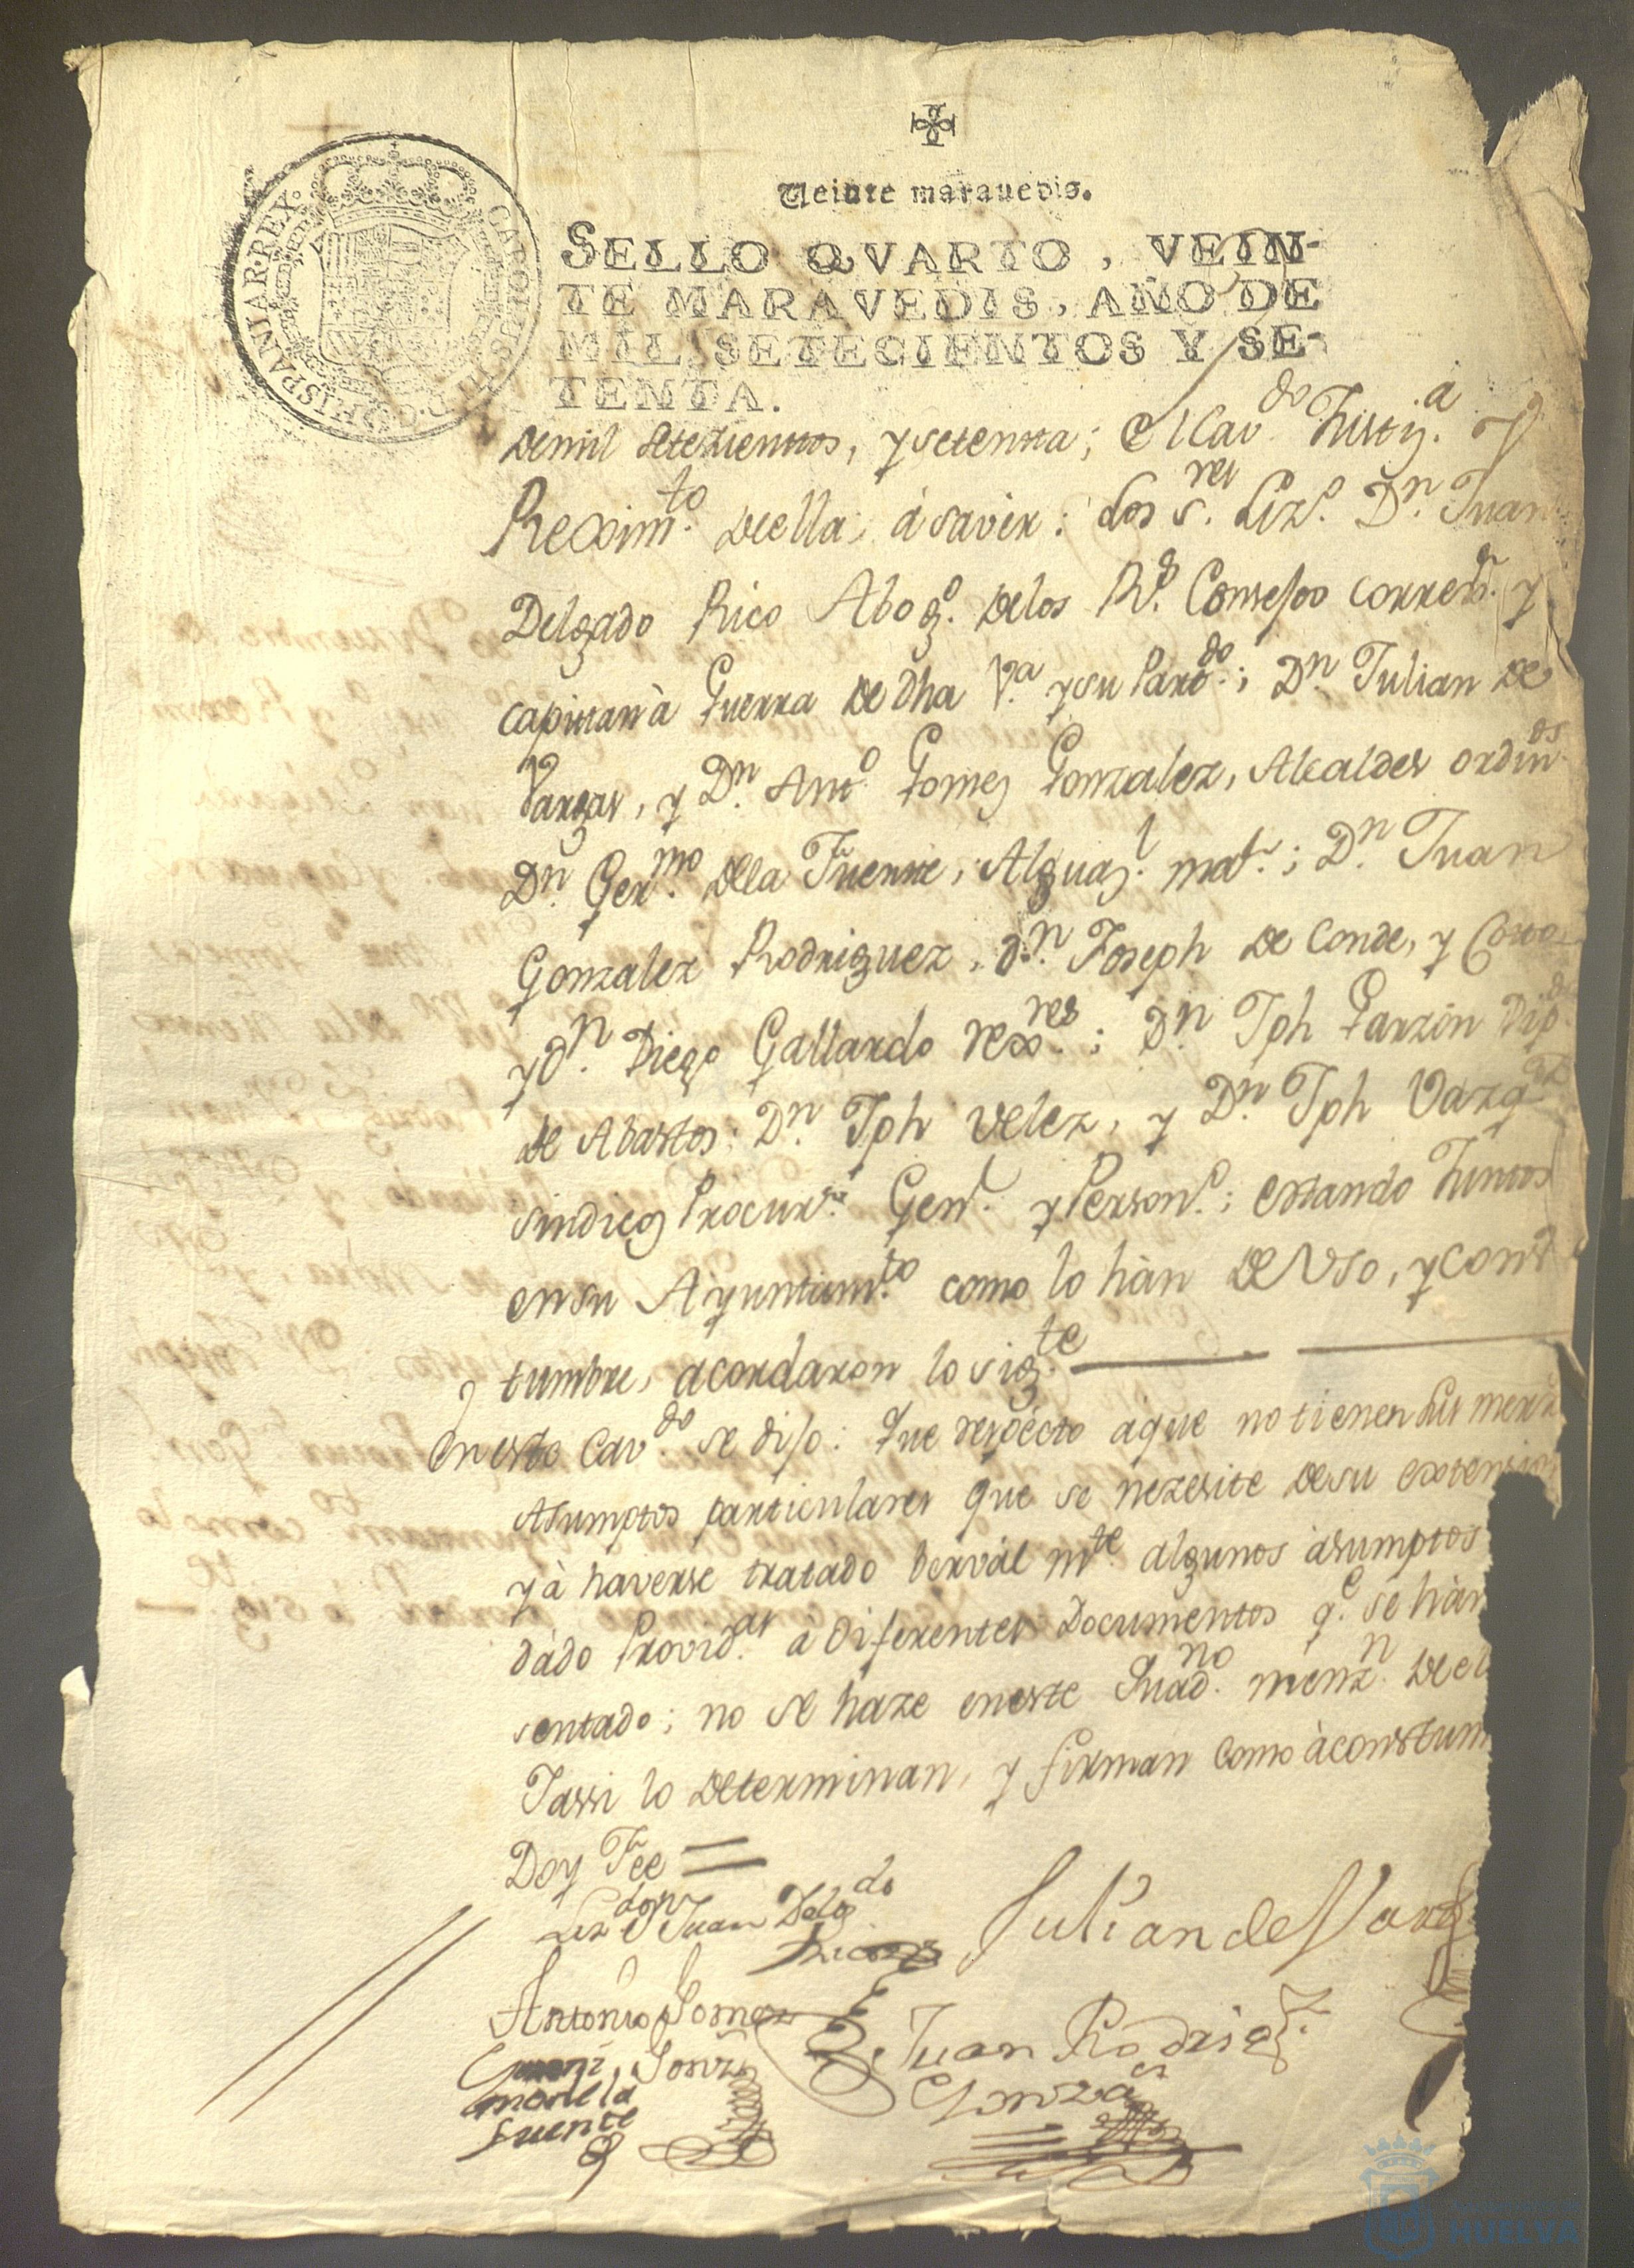 Veinte maravedis.
SELLO QVARTO, VEIN-
TE MARAVEDIS, AÑO DE
MIL SETECIENTOS Y SE-
TENTA.
CAROLUS III D. G. HISPANIAR. REX.
demil setezienttos, y setentta; el Cavdo Justiza y
Reximto de ella; à saver: Los sres Lizdo Dn Juan
Delgado Rico Abogdo delos Rs Consejos correxr y
capittan à Guerra de dha Va y su Partdo; Dn Julian de
Vargas, y Dn Anto Gomez Gonzalez, Alcaldes ordins
Dn Germo dela Fuente, Alguazl mar; Dn Juan
Gonzalez Rodriguez, dn Joseph de Conde, y
y dn Diego Gallardo rexres; Dn Jph Garzin Dipdo
de Abastos; Dn Jph Velez, y Dn Jph Vazqz
sindicos Procurr Genl y Persono; estando Juntos
en su Ayuntamto como lo hàn de Vso, y cons
tumbre, acordaron lo sigte
en este Cavdo se dijo: Que respecto àque no tienen
Asumptos particulares que se nezesite de su extension
y à haverse tratado berval mte algunos àsumptos
dàdo Providas à diferentes Documentos qe se hàn
sentado; no se haze eneste Quadno menzn de el
Y assi lo determinan, y firman como àconstum
Doy Fee =
Lizdo dn Juan Delgdo
Rico
Julian de Varg
Antonio Gomez
Gonz
Juan Rodrigz
Gonzas
Geroni
mo de la
fuente
HUELVA